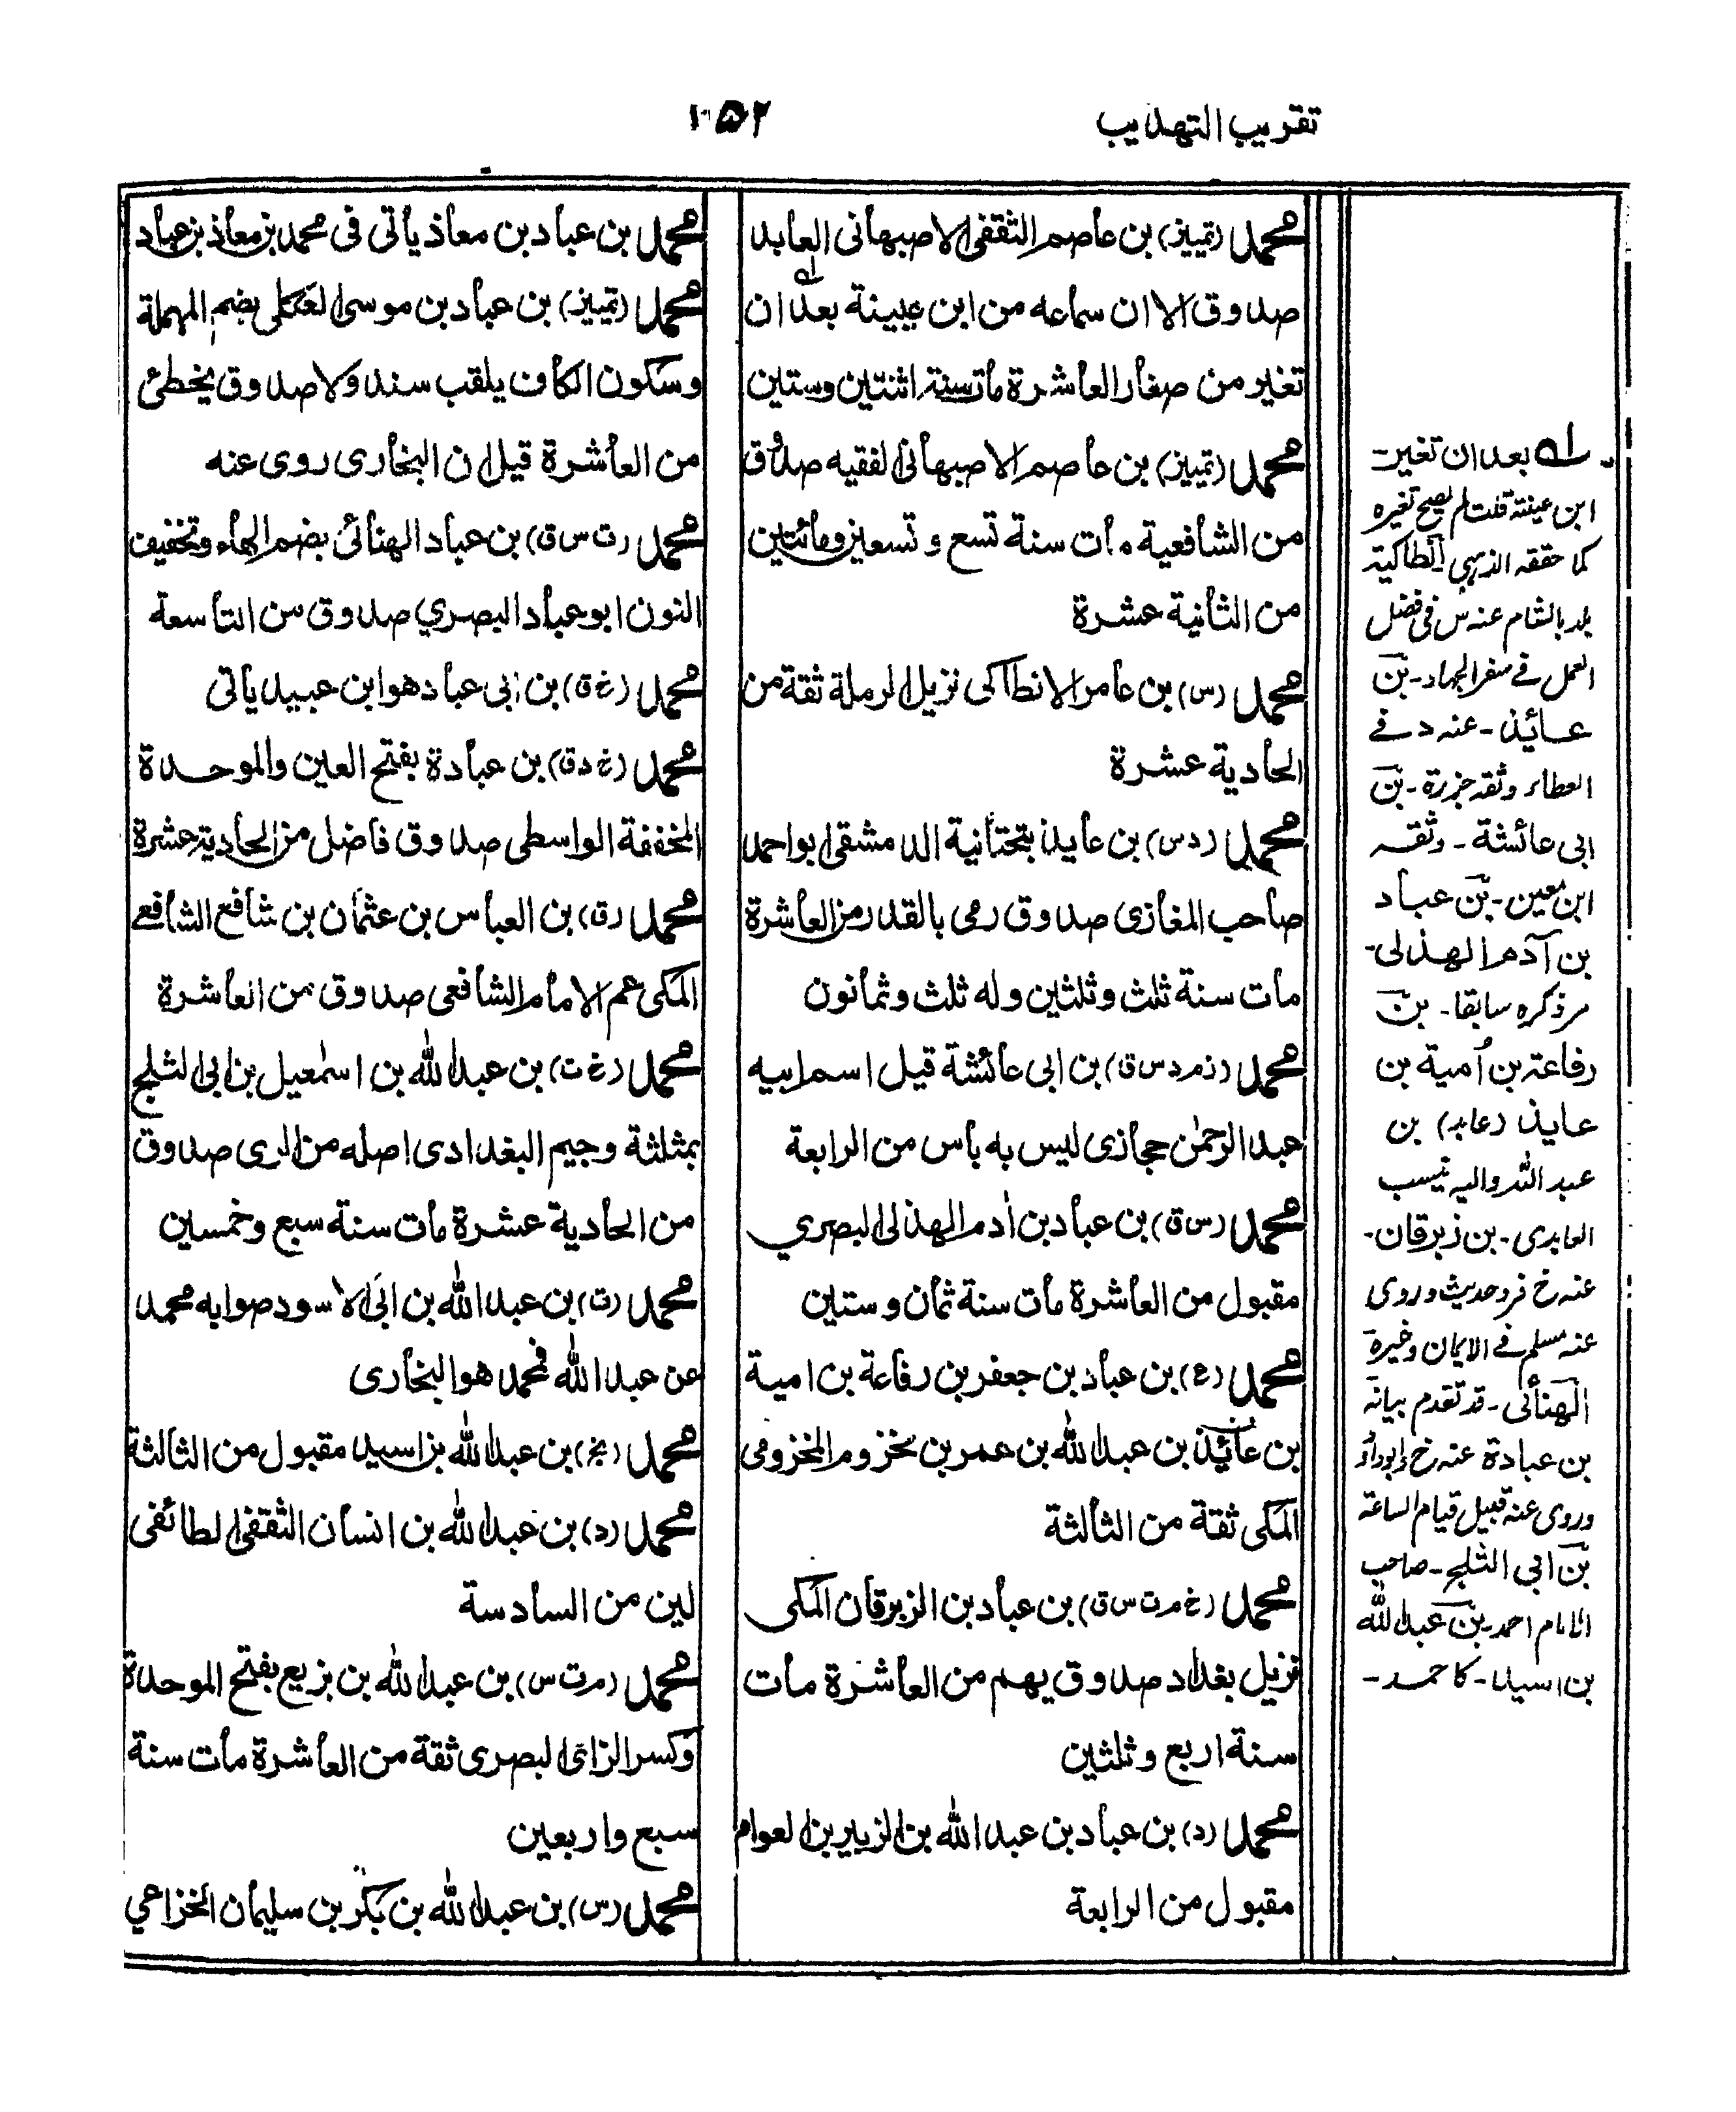 تقريب التهذيب
١٠٥٢
محمد (تمييز) بن عاصم الثقفي الاصبهاني العابد
صدوق الا ان سماعه من ابن عيينة بعد ان
تغير من صغار العاشرة مات سنة اثنتين وستين
محمد (تمييز) بن عاصم الاصبهاني الفقيه صدوق
من الشافعية مات سنة تسع و تسعين ومائتين
من الثانية عشرة
محمد (س) بن عامر الانطاكى نزيل الرملة ثقة من
الحادية عشرة
محمد (د س) بن عايذ بتحتانية الدمشقى ابو احمد
صاحب المغازى صدوق رمى بالقدر من العاشرة
مات سنة ثلث وثلثين وله ثلث وثمانون
محمد (ز م د س ق) بن ابى عائشة قيل اسم ابيه
عبد الرحمٰن حجازى ليس به باس من الرابعة
محمد (س ق) بن عباد بن اٰدم الهذلى البصري
مقبول من العاشرة مات سنة ثمان وستين
محمد (ع) بن عباد بن جعفر بن رفاعة بن امية
بن عائذ بن عبد الله بن عمر بن مخزوم المخزومى
المكى ثقة من الثالثة
محمد (خ م ت س ق) بن عباد بن الزبرقان المكى
نزيل بغداد صدوق يهم من العاشرة مات
سنة اربع وثلثين
محمد (د) بن عباد بن عبد الله بن الزبير بن العوام
مقبول من الرابعة
محمد بن عباد بن معاذ ياتى فى محمد بن معاذ بن عباد
محمد (تمييز) بن عباد بن موسى العكلى بضم المهملة
وسكون الكاف يلقب سندولا صدوق يخطئ
من العاشرة قيل ان البخارى روى عنه
محمد (ت س ق) بن عباد الهنائى بضم الهاء وتخفيف
النون ابو عباد البصري صدوق من التاسعة
محمد (خ ق) بن ابى عباد هو ابن عبيد ياتى
محمد (خ د ق) بن عبادة بفتح العين والموحدة
المخففة الواسطى صدوق فاضل من الحادية عشرة
محمد (ق) بن العباس بن عثمان بن شافع الشافعى
المكى عم الامام الشافعى صدوق من العاشرة
محمد (خ ت) بن عبد الله بن اسمٰعيل بن ابى الثلج
بمثلثة وجيم البغدادى اصله من الرى صدوق
من الحادية عشرة مات سنة سبع وخمسين
محمد (ت) بن عبد الله بن ابى الاسود صوابه محمد
عن عبد الله فمحمد هو البخارى
محمد (بخ) بن عبد الله بن اسيد مقبول من الثالثة
محمد (د) بن عبد الله بن انسان الثقفى الطائفى
لين من السادسة
محمد (م ت س) بن عبد الله بن بزيع بفتح الموحدة
وكسر الزاى البصرى ثقة من العاشرة مات سنة
سبع واربعين
محمد (س) بن عبد الله بن بكر بن سليمان الخزاعي
له بعد ان تغير-
ابن عيينة قلت لم يصح تغيره
كما حققه الذهبى انطاكية
بلد بالشام عنه س فى فضل
العمل فے سفر الجهاد- بن
عائذ - عنه د فے
العطاء وثقه جزرة - بن
ابى عائشة - وثقه
ابن معين - بن عباد
بن آدم الهذلى-
مر ذكره سابقا- بن
رفاعة بن اُمية بن
عايذ (عابد) بن
عبد الله واليه ينسب
العابدى - بن زبرقان-
عنه خ فرد حديث وروى
عنه مسلم فے الايمان وغيره
الهنائى - قد تقدم بيانه
بن عبادة عنه خ وابوداؤد
وروى عنه قبيل قيام الساعة
بن ابى الثلج - صاحب
الامام احمد - بن عبد الله
بن اسيد - كاحمد -